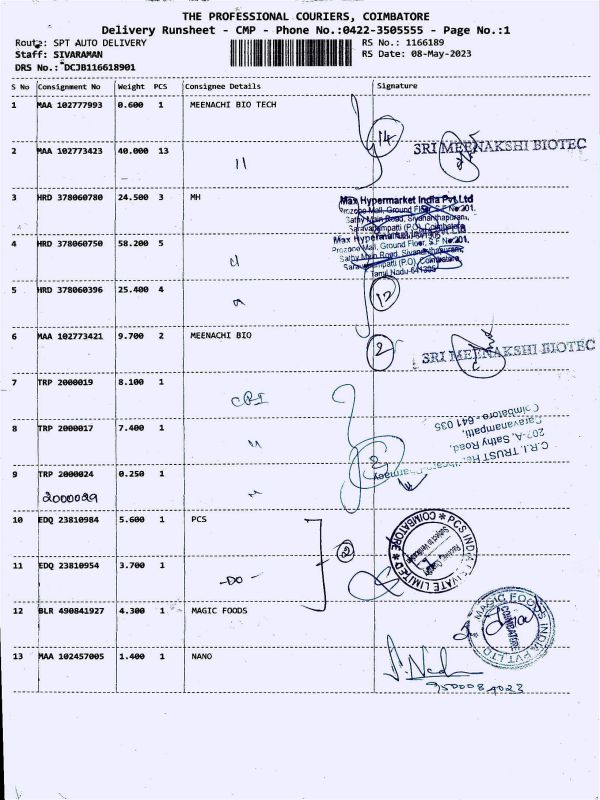 THE PROFESSIONAL COURIERS, COIMBATORE
Delivery Runsheet - CMP - Phone No.:0422-3505555 - Page No.:1
Route: SPT AUTO DELIVERY
RS No.: 1166189
Staff: SIVARAMAN
RS Date: 08-May-2023
DRS No.: DCJB116618901
S No Consignment No Weight PCS Consignee Details Signature
1 MAA 102777993 0.600 1 MEENACHI BIO TECH
14
SRI MEENAKSHI BIOTEC
2 MAA 102773423 40.000 13 "
3 HRD 378060780 24.500 3 MH
Max Hypermarket India Pvt.Ltd
Prozone Mall, Ground Floor, S.F No:201,
Sathy Main Road, Sivananthapuram,
Saravanampatti (P.O), Coimbatore
4 HRD 378060750 58.200 5 "
Max Hypermarket India Pvt.Ltd
Prozone Mall, Ground Floor, S.F No:201,
Sathy Main Road, Sivananthapuram,
Saravanampatti (P.O), Coimbatore
Tamil Nadu-641305
5 HRD 378060396 25.400 4 "
12
6 MAA 102773421 9.700 2 MEENACHI BIO
2
SRI MEENAKSHI BIOTEC
7 TRP 2000019 8.100 1 CRI
8 TRP 2000017 7.400 1 "
C.R.I. TRUST
207-A, Sathy Road,
Saravanampatti,
Coimbatore - 641 035
9 TRP 2000024 0.250 1 "
2000029
2
10 EDQ 23810984 5.600 1 PCS
2
PCS INDIA PRIVATE LIMITED * COIMBATORE *
11 EDQ 23810954 3.700 1 -DO-
12 BLR 490841927 4.300 1 MAGIC FOODS
MAGIC FOODS INDIA PVT LTD
COIMBATORE
13 MAA 102457005 1.400 1 NANO